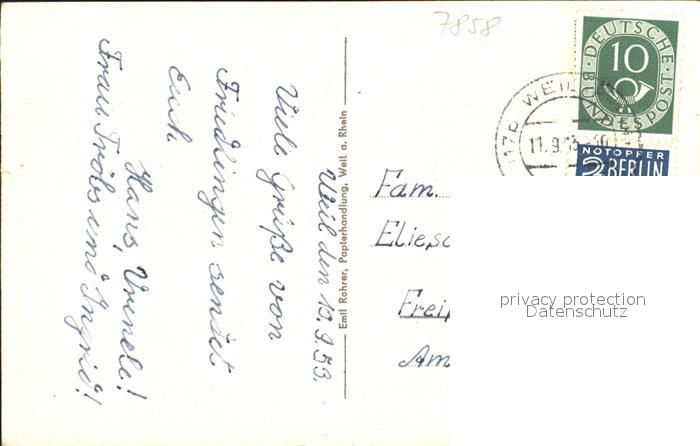 7858
DEUTSCHE
10
BUNDESPOST
17b WEIL
11.9.53
NOTOPFER
2 BERLIN
Weil den 10.9.53.
Viele Grüße von
Fridlingen sendet
Euch
Hans, Vrenele!
Frau Tröbs und Ingrid!
Emil Rohrer, Papierhandlung, Weil a. Rhein
Fam.
Frei
Am
privacy protection
Datenschutz